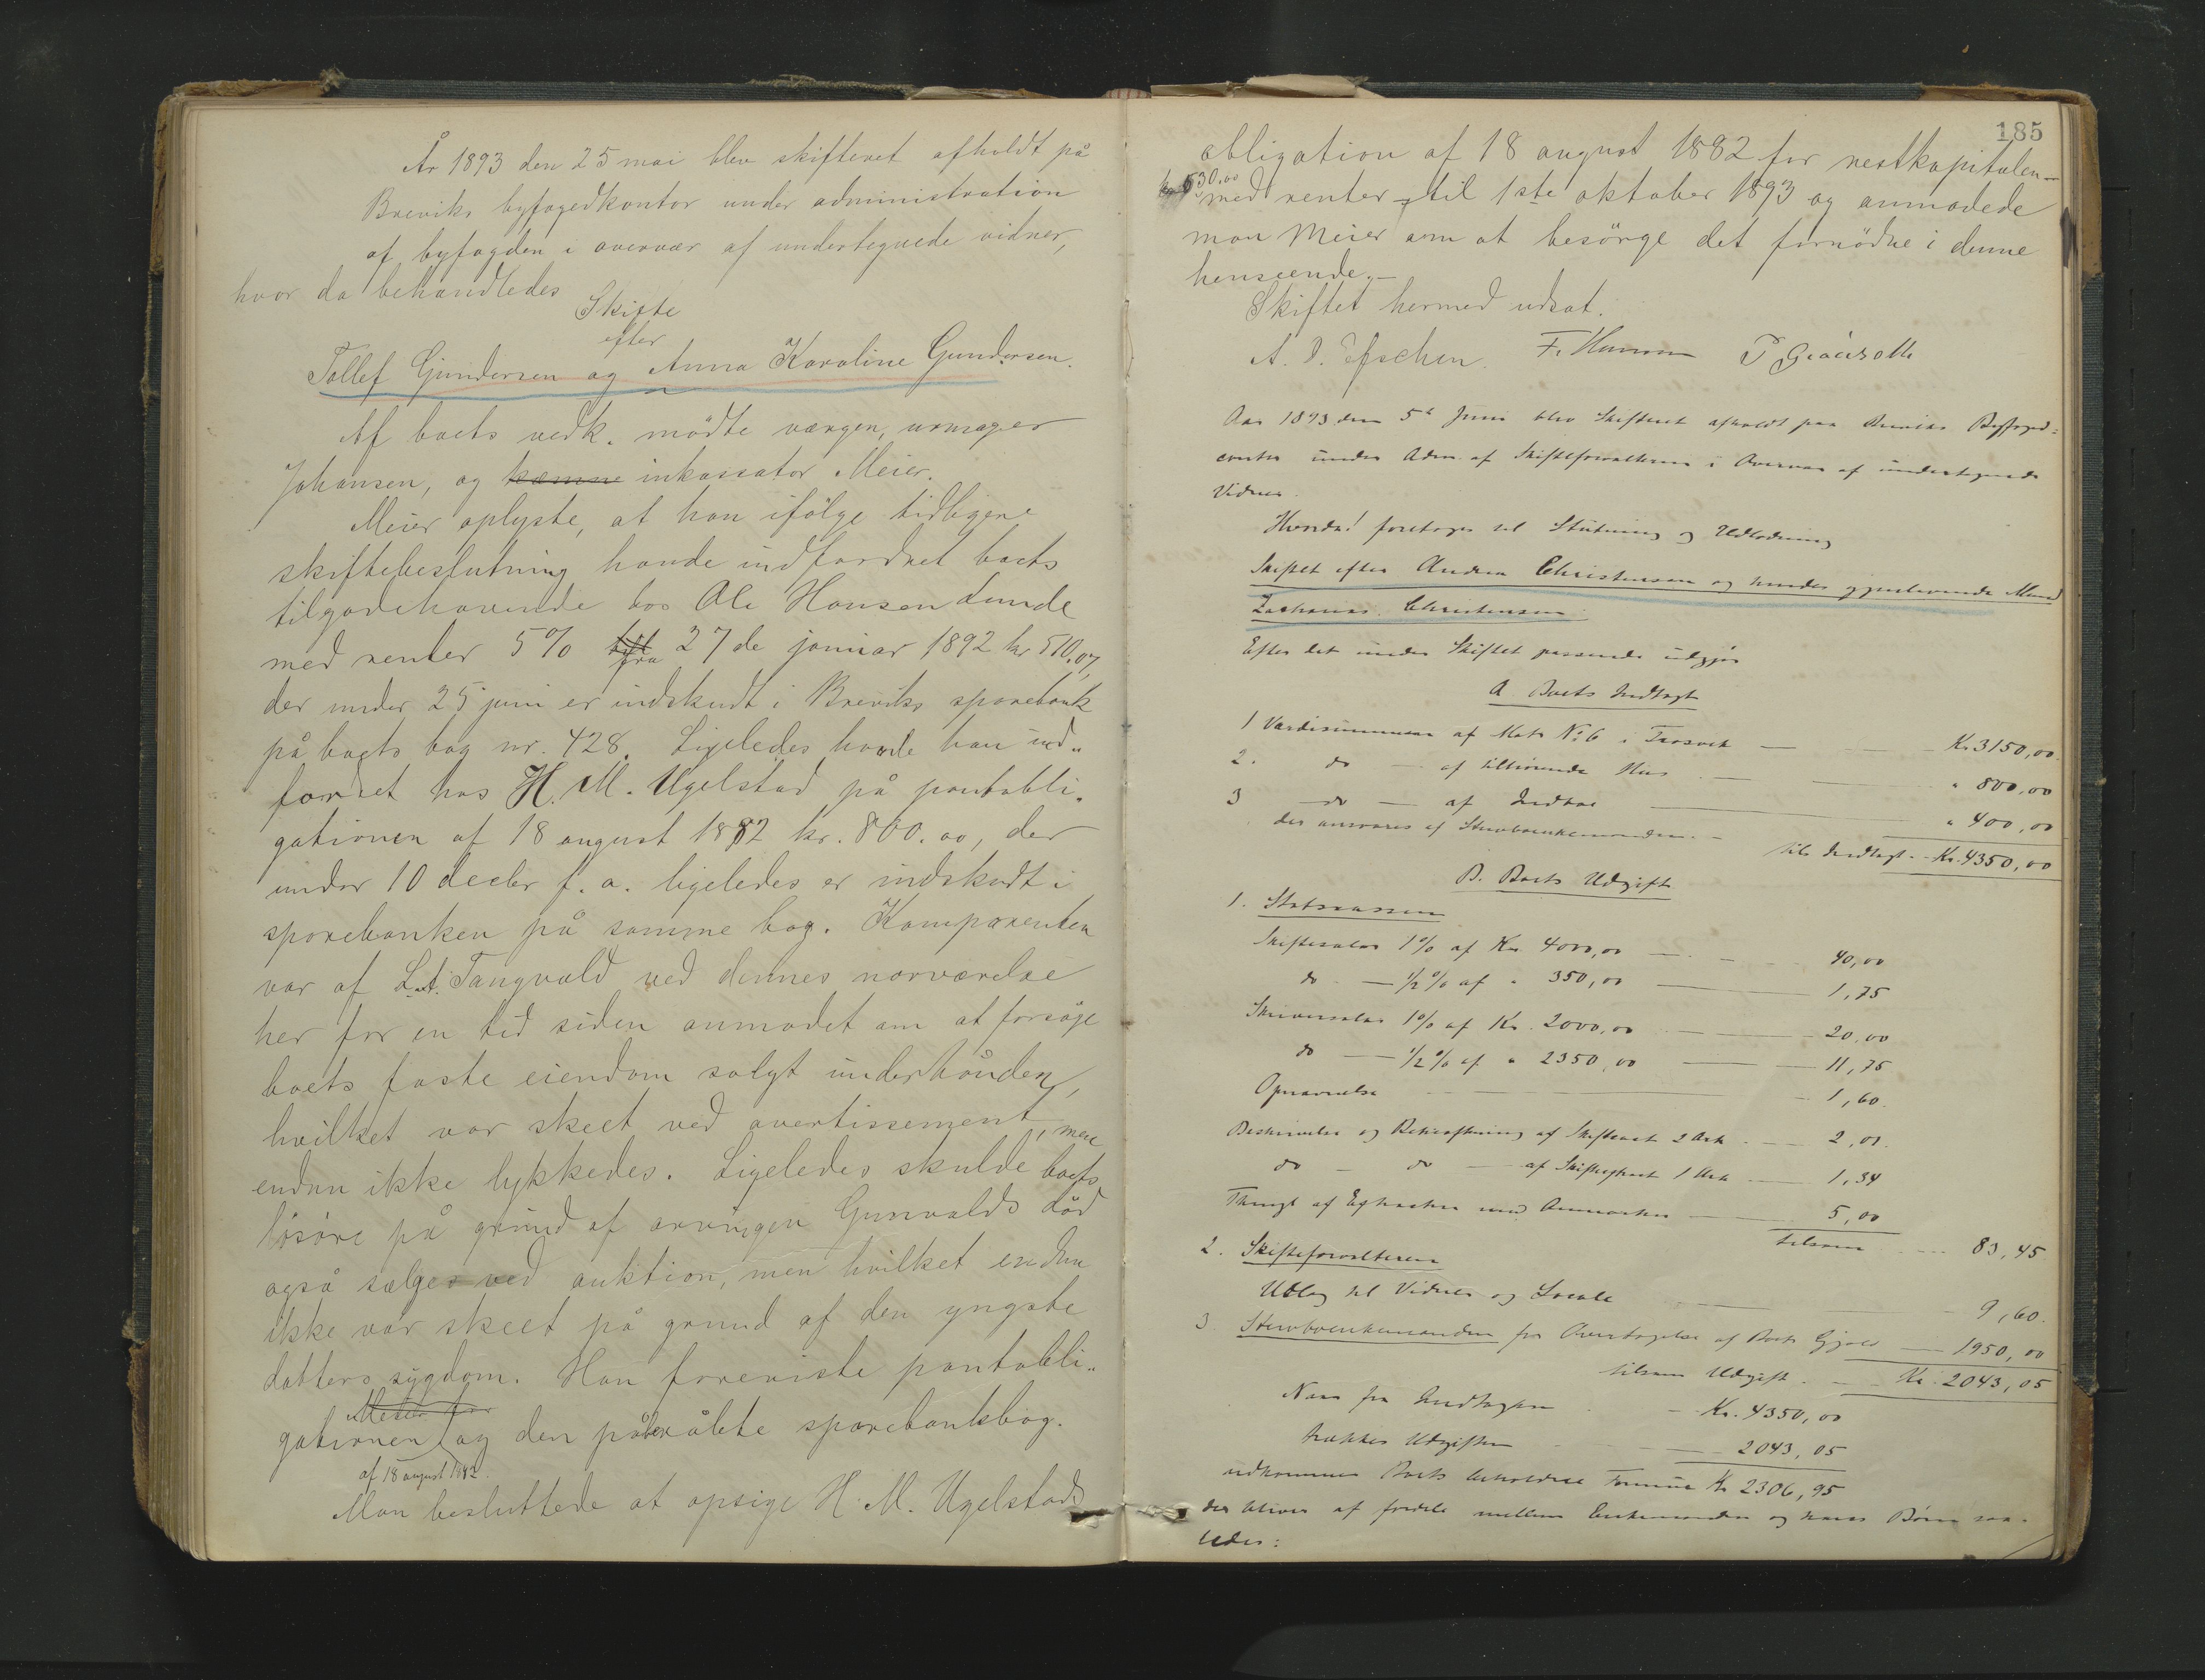 År 1893 den 25 mai blev skifteret afholdt på
Breviks byfogedkontor under administration
af byfogden i overvær af undertegnede vidner,
hvor da behandledes
Skifte
efter
Tollef Gundersen og Anna Karoline Gundersen.
Af boets vedk. mödte værgen, urmager
Johansen, og kæmne inkassator Meier.
Meier oplyste, at han ifölge tidligere
skiftebeslutning havde indfordret boets
tilgodehavende hos Ole Hansen Lunde
med renter 5% fra 27de januar 1892 kr 510,07,
der under 25 juni er indskudt i Breviks sparebank
på boets bog nr. 428. Ligeledes havde han ind„
fordret hos H. M. Ugelstad på pantobli„
gationen af 18 august 1882 kr. 800.00, der
under 10 decbr f. a. ligeledes er indskudt i
sparebanken på samme bog. Komparenten
var af L. A. Tangvald ved dennes nærværelse
her for en tid siden anmodet om at forsöge
boets faste eiendom solgt underhånden,
hvilket var skeet ved avertissement, men
endnu ikke lykkedes. Ligeledes skulde boets
lösöre på grund af arvingen Gunvalds död
også sælges ved auktion, men hvilket endnu
ikke var skeet på grund af den yngste
datters sygdom. Han foreviste pantobli„
Meier for
gationen og den påberåbte sparebanksbog.
af 18 august 1882.
Man besluttede at opsige H. M. Ugelstads
185
obligation af 18 august 1882 for restkapitalen—
kr 530.00
med renter til 1ste oktober 1893 og anmodede
man Meier om at besörge det fornödne i denne
henseende.—
Skiftet hermed udsat.
A. D. F. Hansen P
Aar 1893 den 5te Juni blev Skifteret afholdt paa Breviks Byfoged=
contor under Adm. af Skifteforvalteren i Overvær af undertegnede
Vidner.
Hvorda! foretoges til Slutning og Udlodning
Skiftet efter Andrea Christensen og hendes gjenlevende Mand
Zacharias Christensen.
Efter det under Skiftet passerede udgjør
A. Boets Indtægt
1 Værdisummen af Matr No 6 i Trosvik — Kr. 3150,00.
2. do — af tilhørende Hus — " 800,00
3 — do — af Indbo — " 400,00
der ansvares af Stervboenkemanden. — tils. Indtægt - Kr. 4350,00
B. Boets Udgift
1. Statscassen
Skiftesalær 1% af Kr. 4000,00 — 40,00
do — ½% af " 350,00 — 1,75
Skriversalær 1% af Kr. 2000,00 — 20,00
do — ½% af " 2350,00 — 11,75
Opnævnelse — 1,60.
Beskrivelse og Bekræftning af Skifteact 2 Ark — 2,01.
do — do — af Skifteextract 1 Ark — 1,34
af Extracten med — 5,00
tilsam — 83,45
2. Skifteforvalteren
Udlæg til Vidner og Locale — 9,60.
3. Stervboenkemanden for Overtagelse af Boets Gjæld — 1950,00
tilsam Udgift — Kr. 2043,05
Naar fra Indtægten — Kr. 4350,00
trækkes Udgiften — 2043,05
udkommer Boets beholdne Formue Kr 2306,95
der bliver at fordele mellem Enkemanden og hans Børn saa-
ledes: